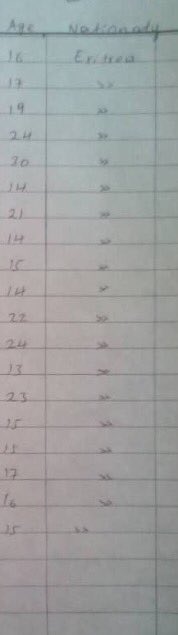 Age Nationality
16 Eritrea
17 »
19 »
24 »
20 »
14 »
21 »
14 »
15 »
14 »
22 »
24 »
13 »
23 »
15 »
15 »
17 »
16 »
15 »